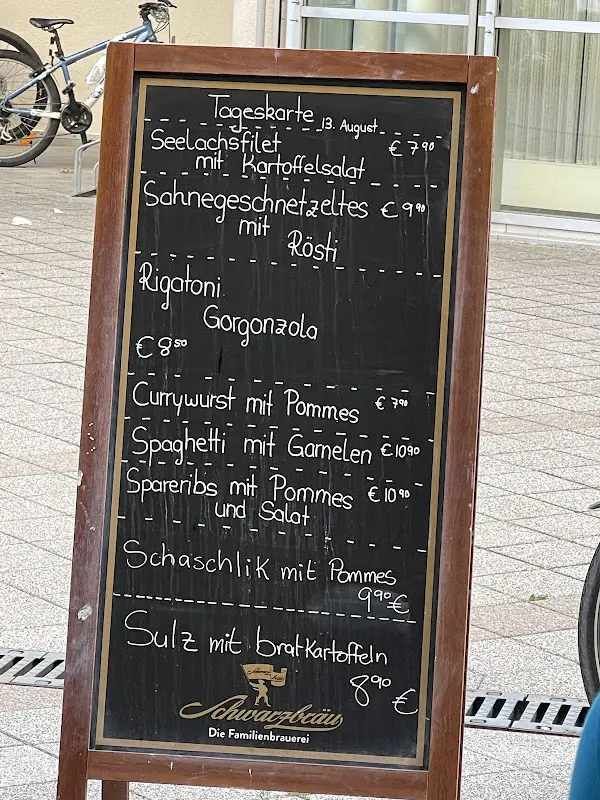 Tageskarte 13. August
Seelachsfilet € 7⁹⁰
mit Kartoffelsalat
Sahnegeschnetzeltes € 9⁹⁰
mit
Rösti
Rigatoni
Gorgonzola
€ 8⁵⁰
Currywurst mit Pommes € 7⁹⁰
Spaghetti mit Garnelen € 10⁹⁰
Spareribs mit Pommes € 10⁹⁰
und Salat
Schaschlik mit Pommes
9⁹⁰ €
Sulz mit bratkartoffeln
8⁹⁰ €
Schwarzbräu
Die Familienbrauerei